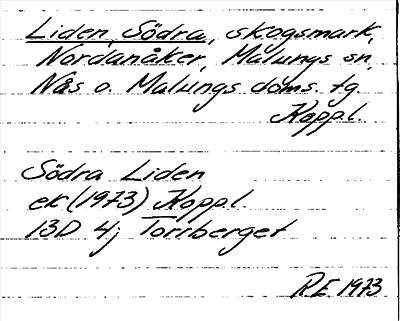 Liden, Södra, skogsmark,
Nordanåker, Malungs sn,
Nås o. Malungs doms. tg.
Koppl.
Södra Liden
ek (1973) Koppl.
13D 4j Torrberget
RE 1973